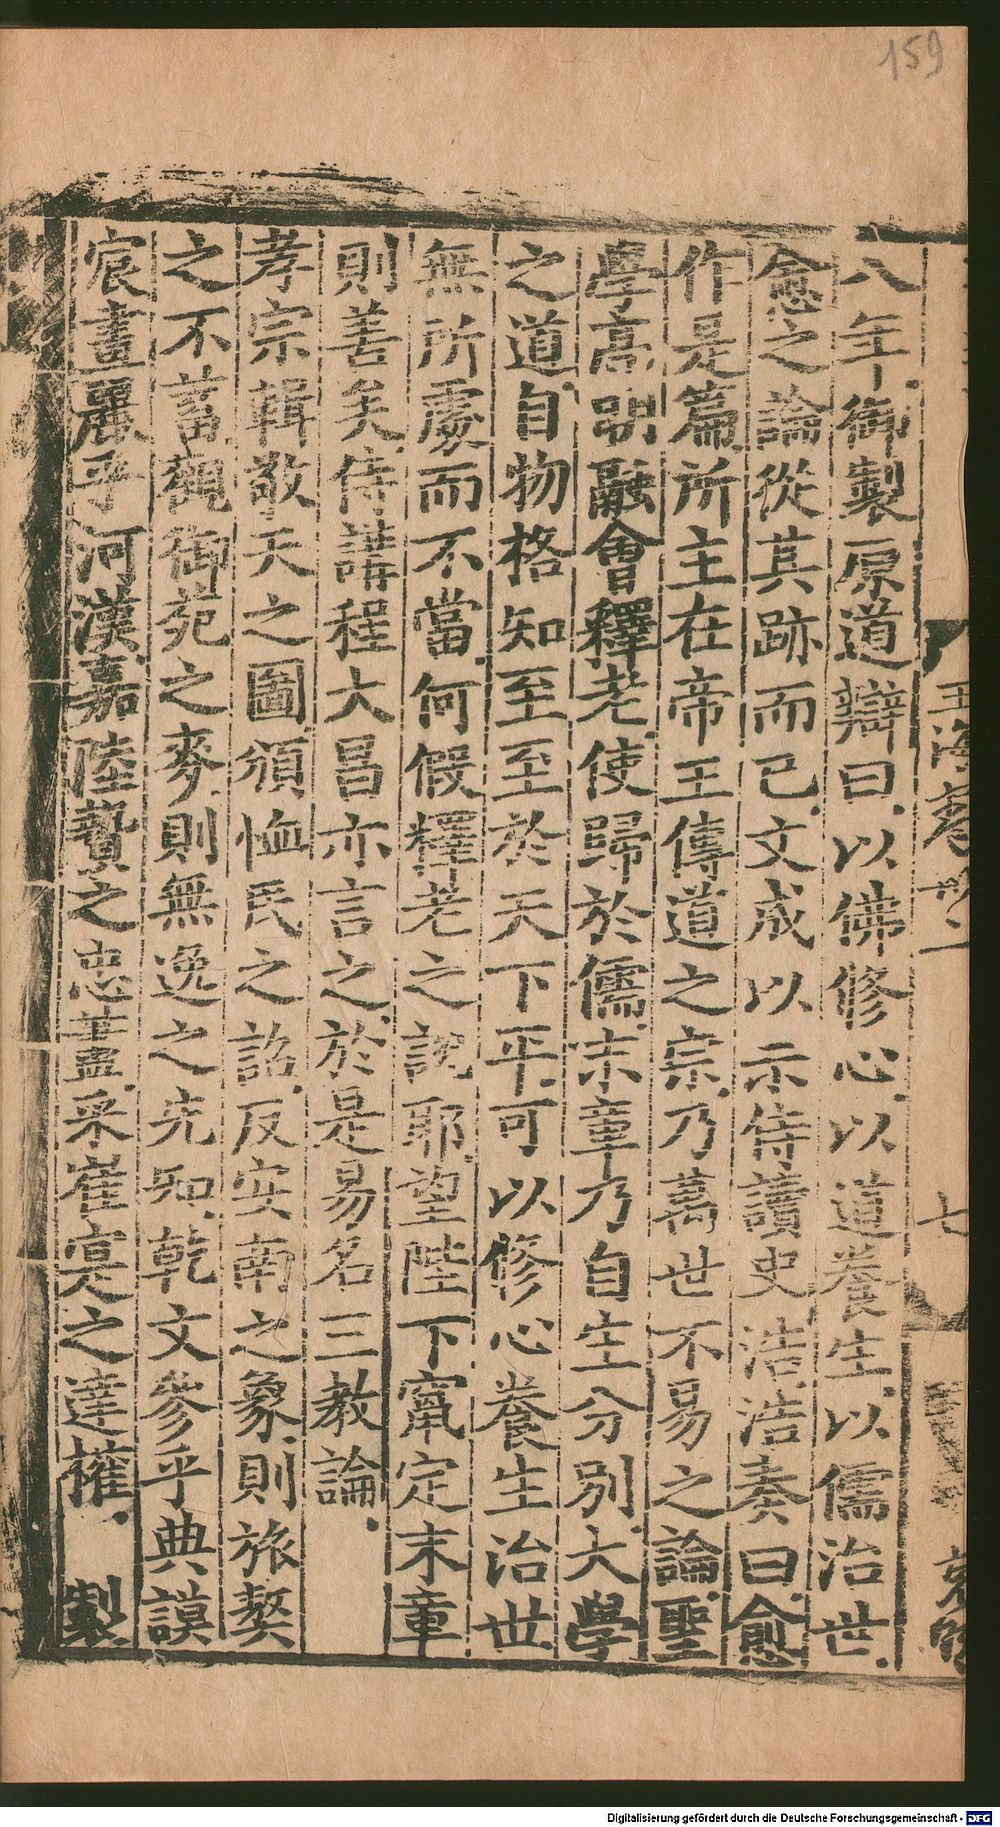 159
王海卷卅二
七
八年御製原道辯曰以佛修心以道養生以儒治世
愈之論從其跡而已文成以示侍讀史浩浩奏曰愈
作是篇所主在帝王傳道之宗乃萬世不易之論聖
學高明融會釋老使歸於儒宗章乃自生分別大學
之道自物格知至至於天下平可以修心養生治世
無所處而不當何假釋老之說耶望陛下甯定末章
則善矣侍講程大昌亦言之於是易名三教論
孝宗輯敬天之圖頒恤民之詔反安南之象則旅獒
之不蓄觀御苑之麥則無逸之先知乾文參乎典謨
宸畫麗乎河漢嘉陸贄之忠藎采崔寔之達權 製
Digitalisierung gefördert durch die Deutsche Forschungsgemeinschaft - DFG